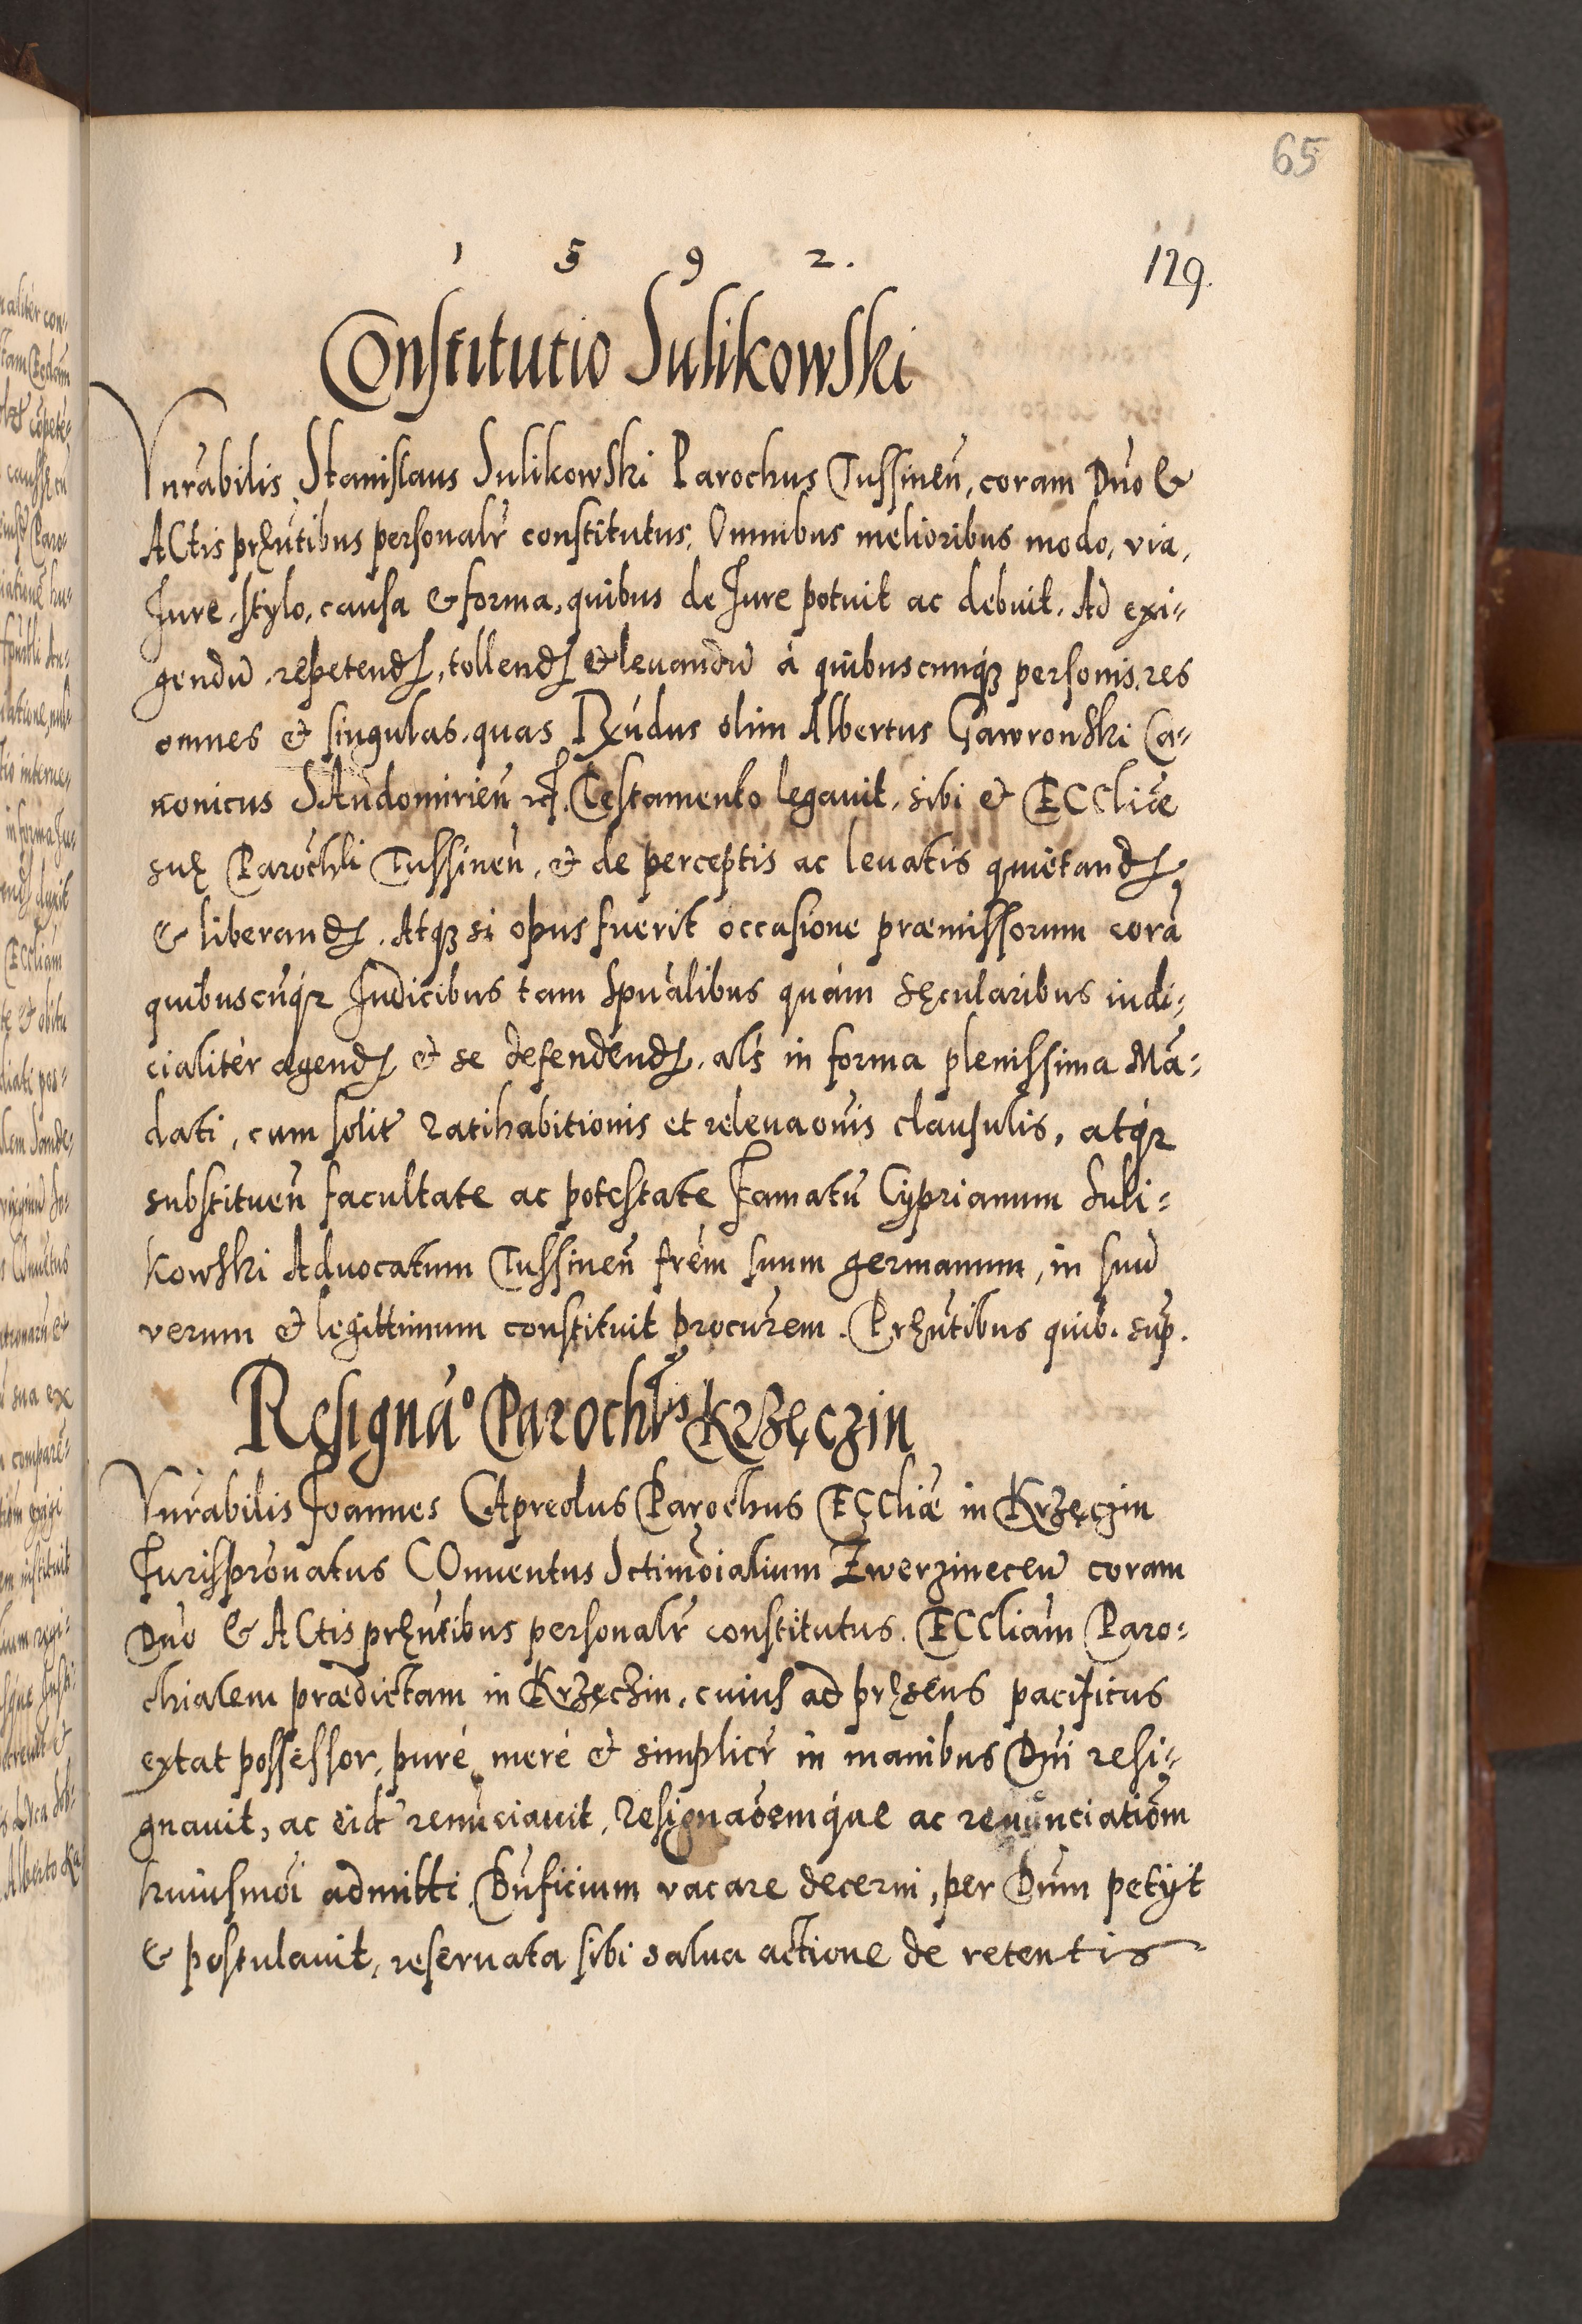 65
1 5 9 2.
129.
Constitutio Sulikowski
Vnrabilis Stanislaus Sulikowski Parochus Tussinen̄, coram Dn̄o &
Actis pręn̄tibus personalr̄ constitutus, Omnibus melioribus modo, via,
Jure, stylo, causa & forma, quibus de Jure potuit ac debuit. Ad exi-
gendū, repetend, tollend & leuandū à quibuscunq; personis, res
omnes & singulas, quas Rn̄dus olim Albertus Gawronski Ca-
nonicus SAndomirien̄ Testamento legauit, sibi & ECCliæ
suę Parochli Tussinen̄, & de perceptis ac leuatis quietand,
& liberand. Atq; si opus fuerit occasione præmissorum corā
quibuscūq; Judicibus tam Spūalibus quàm sęcularibus iudi-
cialitèr agend & se defendend, als in forma plenissima Mā-
dati, cum solit ratihabitionis et releuaōnis clausulis, atq;
substituen̄ facultate ac potestate Famatū Cyprianum Suli-
kowski Aduocatum Tussinen̄ frēm suum germanum, in suū
verum & legittimum constituit procurem. Pręn̄tibus quib. sup.
Resignāo Parochlis Krzęczin
Vnrabilis Joannes CApreolus Parochus ECCliæ in Krzęczin
Jurisprōnatus COnuentus Sctimōialium Zwerzinecen̄ coram
Dn̄o & ACtis pręn̄tibus personalr̄ constitutus. ECCliam Paro-
chialem prædictam in Krzęczin, cuius ad pręsens pacificus
extat possessor, purè, merè & simplicr̄ in manibus Dn̄i resi-
gnauit, ac eid renūciauit, Resignaōemque ac renunciatiōm
huiusmōi admitti, Bn̄ficium vacare decerni, per Dn̄m petijt
& postulauit, reseruata sibi salua actione de retentis